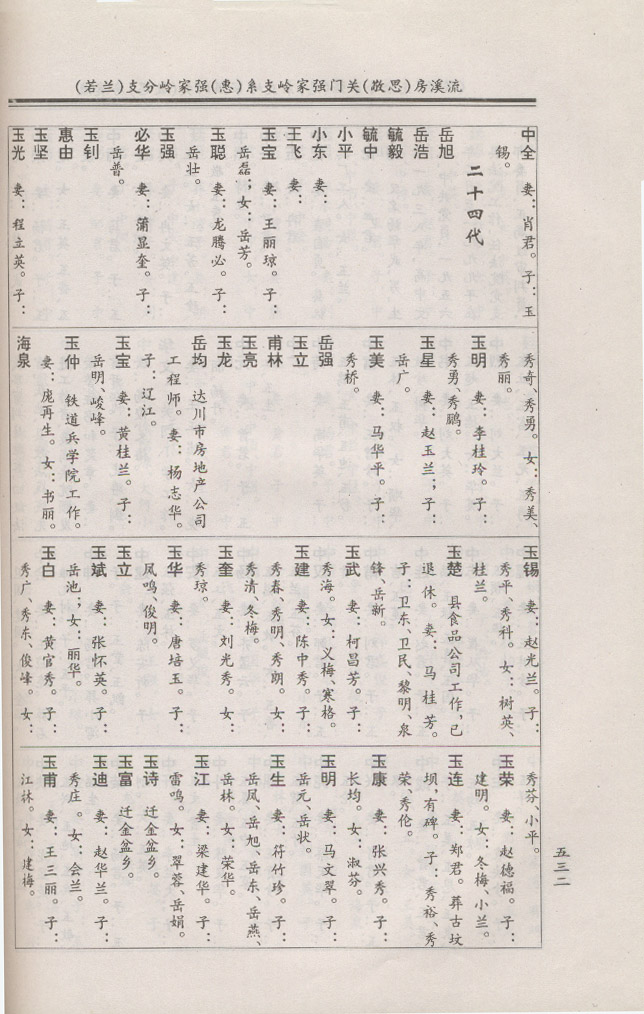 流溪房(思敬)关门强家岭支系(惠)强家岭分支(兰若)
中全 妻：肖君。子：玉
锡。
二十四代
岳旭
岳浩
毓毅
毓中
小平
小东 妻：
王飞 妻：
玉宝 妻：王丽琼。子：
岳磊；女：岳芳。
玉聪 妻：龙腾必。子：
岳壮。
玉强
必华 妻：蒲显奎。子：
岳普。
玉钊
惠由
玉坚
玉光 妻：程立英。子：
秀奇、秀勇。女：秀美、
秀丽。
玉明 妻：李桂玲。子：
秀勇、秀鹏。
玉星 妻：赵玉兰；子：
岳广。
玉美 妻：马华平。子：
秀桥。
岳强
玉立
甫林
玉亮
玉龙
岳均 达川市房地产公司
工程师。妻：杨志华。
子：辽江。
玉宝 妻：黄桂兰。子：
岳明、峻峰。
玉仲 铁道兵学院工作。
妻：庞再生。女：书丽。
海泉
玉锡 妻：赵光兰。子：
秀平、秀科。女：树英、
桂兰。
玉楚 县食品公司工作，已
退休。妻：马桂芳。
子：卫东、卫民、黎明、泉
锋、岳新。
玉武 妻：柯昌芳。子：
秀海。女：义梅、寒格。
玉建 妻：陈中秀。子：
秀春、秀明、秀朗。女：
秀清、冬梅。
玉奎 妻：刘光秀。女：
秀琼。
玉华 妻：唐培玉。子：
凤鸣、俊明。
玉立
玉斌 妻：张怀英。子：
岳池；女：丽华。
玉白 妻：黄官秀。子：
秀广、秀东、俊峰。女：
秀芬、小平。
玉荣 妻：赵德福。子：
建明。女：冬梅、小兰。
玉连 妻：郑君。葬古坟
坝，有碑。子：秀裕、秀
荣、秀伦。
玉康 妻：张兴秀。子：
长均。女：淑芬。
玉明 妻：马文翠。子：
岳元、岳状。
玉生 妻：符竹珍。子：
岳凤、岳旭、岳东、岳燕、
岳林。女：荣华。
玉江 妻：梁建华。子：
雷鸣。女：翠蓉、岳娟。
玉诗 迁金盆乡。
玉富 迁金盆乡。
玉迪 妻：赵华兰。子：
秀庄。女：会兰。
玉甫 妻：王三丽。子：
江林。女：建梅。
五三二